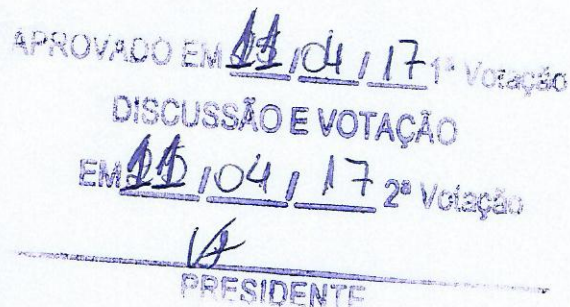 APROVADO EM 11/04/17 1ª Votação
DISCUSSÃO E VOTAÇÃO
EM 11/04/17 2ª Votação
PRESIDENTE